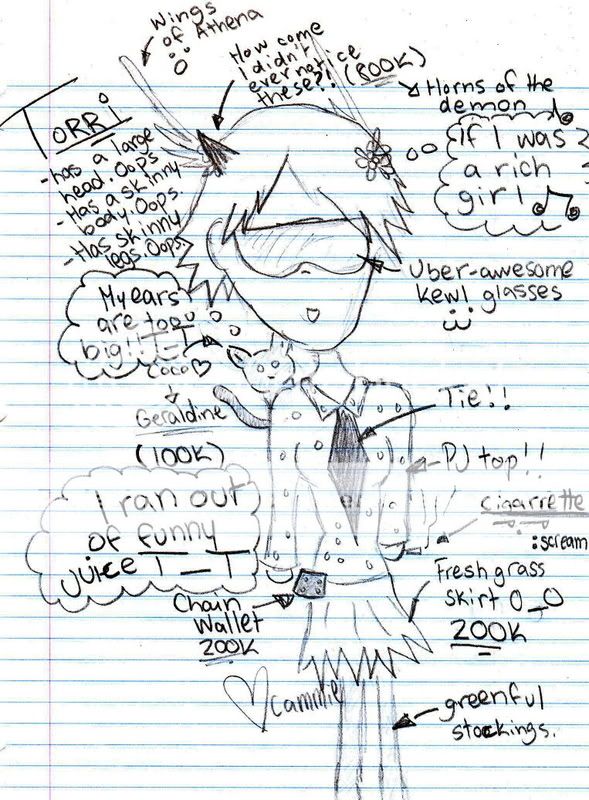 Wings
of Athena
How come
I didn't
ever notice
these?!
(800K)
Horns of the
demon
TORRi
-has a large
head. Oops
-Has a skinny
body. Oops.
-Has skinny
legs. Oops.
If I was
a rich
girl
My ears
are too
big!! T_T
COCO♡
Geraldine
(100K)
Uber-awesome
kewl glasses
Tie!!
PJ top!!
cigarrette
:scream
I ran out
of funny
juice T_T
Chain
Wallet
200K
Fresh grass
skirt O_O
200K
♡cammie
greenful
stockings.